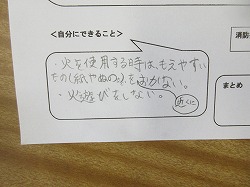 <自分にできること>
消防
・火を使用する時は、もえやすい
もの(紙やぬの。)をおかない。
・火遊びをしない。
近くに
まとめ